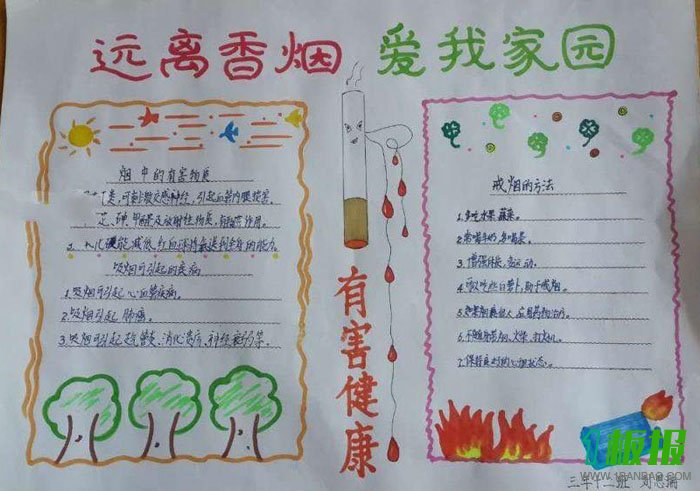 远离香烟 爱我家园
烟中的有害物质
类,可刺激交感神经,引起血管内膜损害。
芘、砷、甲醛及放射性物质,有致癌作用。
3、氧化碳能减低红血球将氧输送到全身的能力。
吸烟可引起的疾病
1.吸烟可引起心血管疾病。
2.吸烟引起肺癌。
3.吸烟可引起支气管炎、消化溃疡、神经衰弱等。
有害健康
戒烟的方法
1.多吃水果蔬菜。
2.常喝牛奶,多喝茶。
3.增强体质,多运动。
4.吃白萝卜,助于戒烟。
5.如果烟瘾
6.不随身带烟、火柴、打火机。
7.保持良好的心理状态。
板报
WWW.1BANBAO.COM
三年十二班 刘思